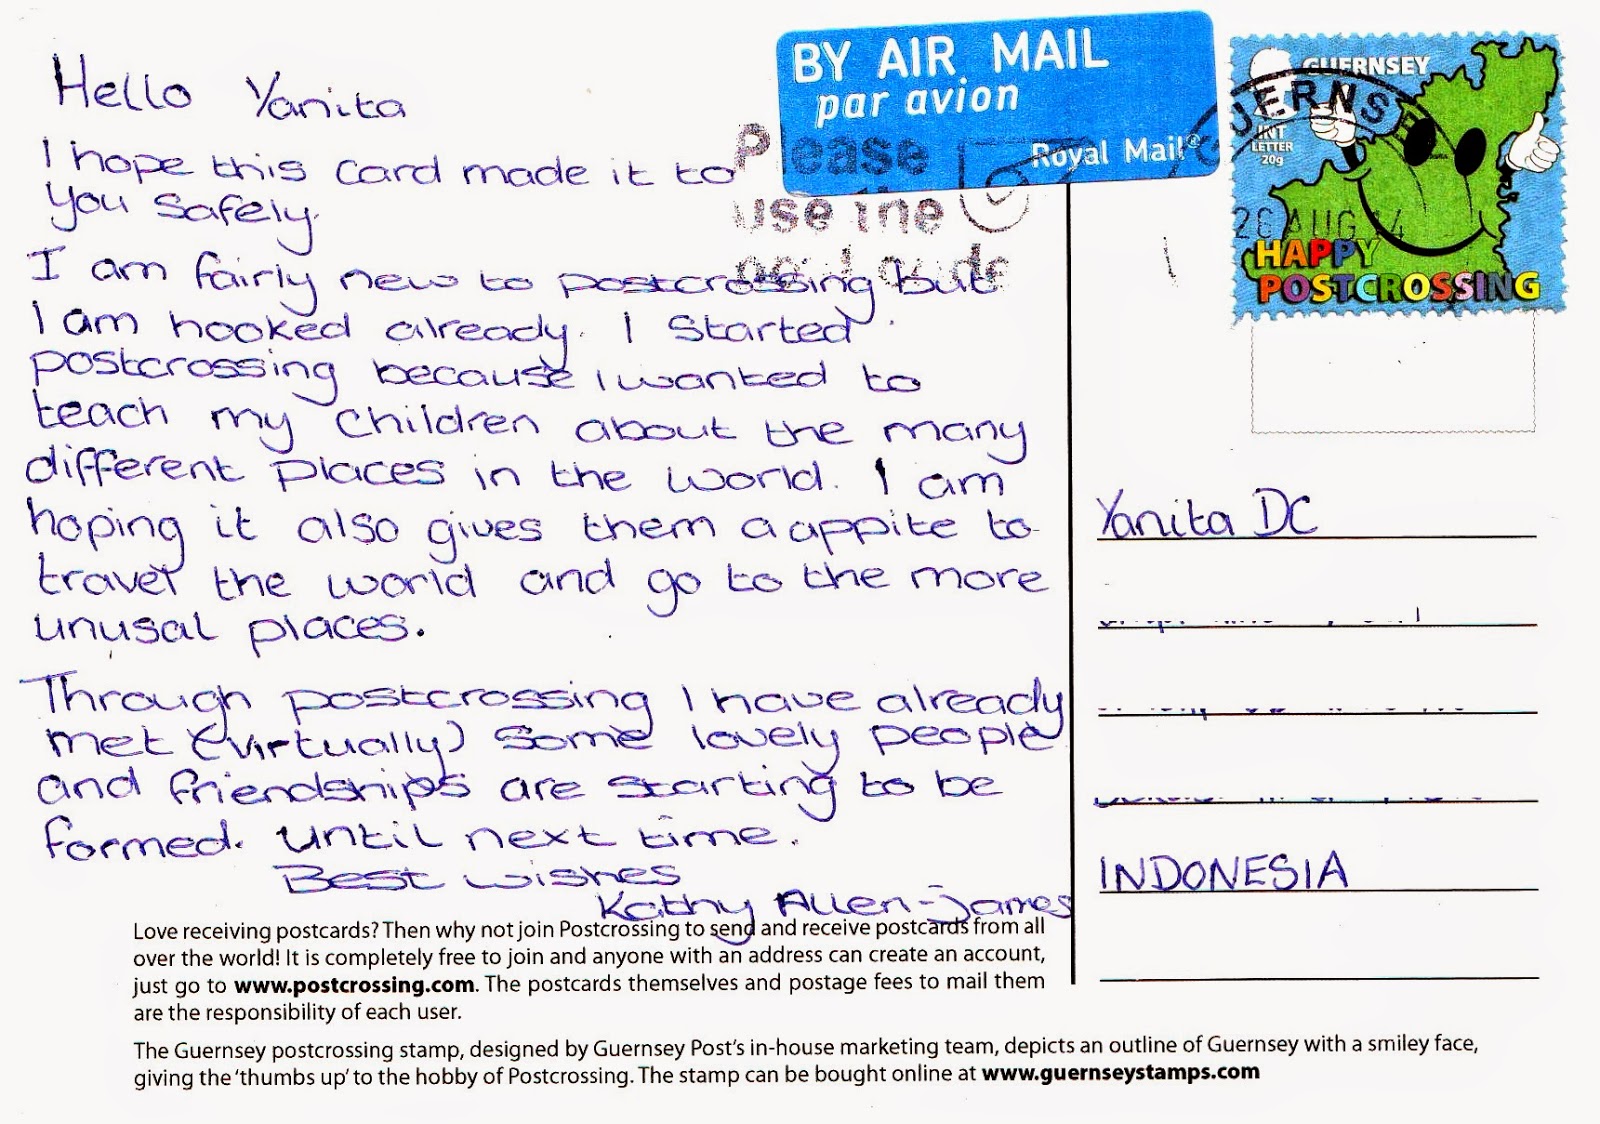 Hello Yanita
I hope this card made it to
you safely.
I am fairly new to postcrossing but
I am hooked already. I started
postcrossing because I wanted to
teach my children about the many
different places in the world. I am
hoping it also gives them a appite to
travel the world and go to the more
unusal places.
Through postcrossing I have already
met (virtually) some lovely people
and friendships are starting to be
formed. Until next time.
Best wishes
Kathy Allen-James
BY AIR MAIL
par avion
Royal Mail®
Please
use the
GUERNSEY
INT
LETTER
20g
GUERNSE
26 AUG 14
HAPPY
POSTCROSSING
Yanita DC
INDONESIA
Love receiving postcards? Then why not join Postcrossing to send and receive postcards from all
over the world! It is completely free to join and anyone with an address can create an account,
just go to www.postcrossing.com. The postcards themselves and postage fees to mail them
are the responsibility of each user.
The Guernsey postcrossing stamp, designed by Guernsey Post's in-house marketing team, depicts an outline of Guernsey with a smiley face,
giving the 'thumbs up' to the hobby of Postcrossing. The stamp can be bought online at www.guernseystamps.com